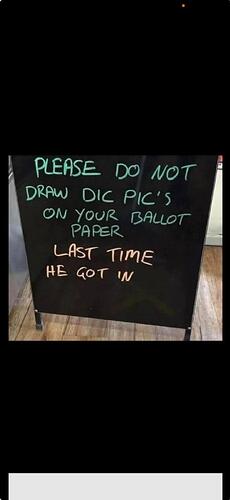 PLEASE DO NOT
DRAW DIC PIC'S
ON YOUR BALLOT
PAPER
LAST TIME
HE GOT IN